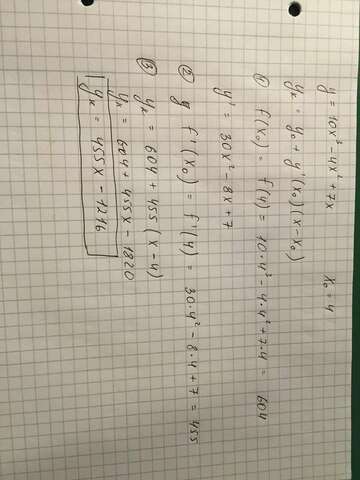 y = 10x³ - 4x² + 7x x₀ = 4
yₓ = y₀ + y'(x₀)(x - x₀)
① f(x₀) = f(4) = 10·4³ - 4·4² + 7·4 = 604
y' = 30x² - 8x + 7
② y f'(x₀) = f'(4) = 30·4² - 8·4 + 7 = 455
③ yₓ = 604 + 455(x - 4)
yₓ = 604 + 455x - 1820
yₓ = 455x - 1216